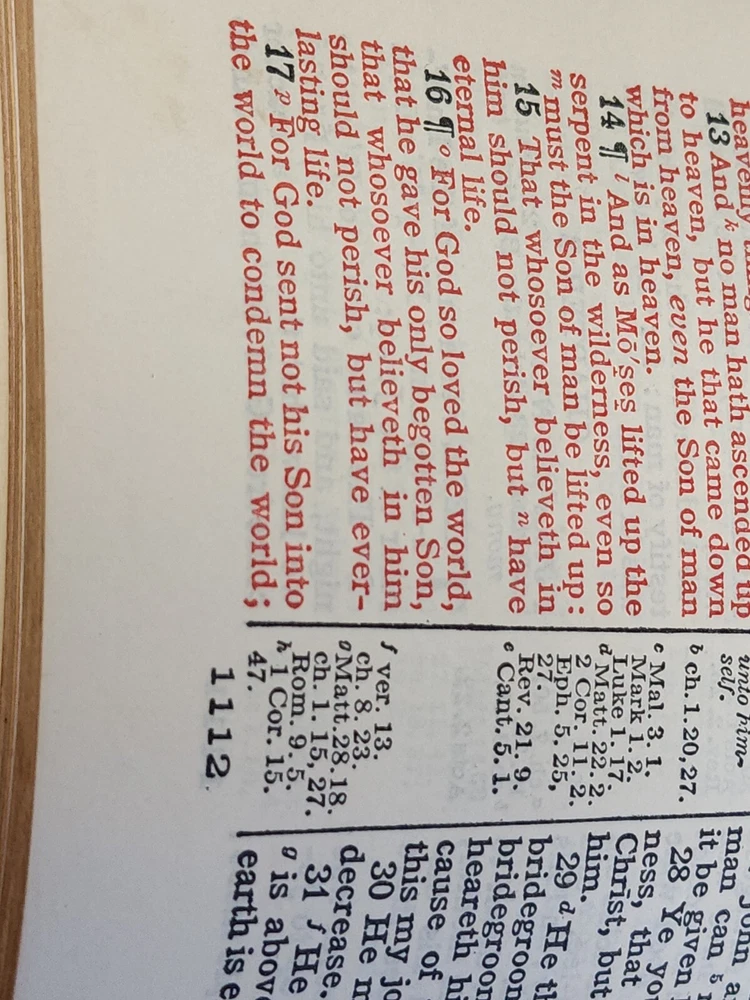 heavenly
13 And k no man hath ascended up
to heaven, but he that came down
from heaven, even the Son of man
which is in heaven.
14 ¶ l And as Mō′ses̱ lifted up the
serpent in the wilderness, even so
m must the Son of man be lifted up:
15 That whosoever believeth in
him should not perish, but n have
eternal life.
16 ¶ o For God so loved the world,
that he gave his only begotten Son,
that whosoever believeth in him
should not perish, but have ever-
lasting life.
17 p For God sent not his Son into
the world to condemn the world;
unto him-
self.
b ch. 1. 20, 27.
c Mal. 3. 1.
Mark 1. 2.
Luke 1. 17.
d Matt. 22. 2.
2 Cor. 11. 2.
Eph. 5. 25,
27.
Rev. 21. 9.
e Cant. 5. 1.
f ver. 13.
ch. 8. 23.
g Matt. 28. 18.
ch. 1. 15, 27.
Rom. 9. 5.
h 1 Cor. 15.
47.
1112
man can 5
it be given
28 Ye yo
ness, that
Christ, but
him.
29 d He th
bridegroom
bridegroom
heareth hi
cause of
this my jo
30 He m
decrease.
31 f He
g is above
earth is e